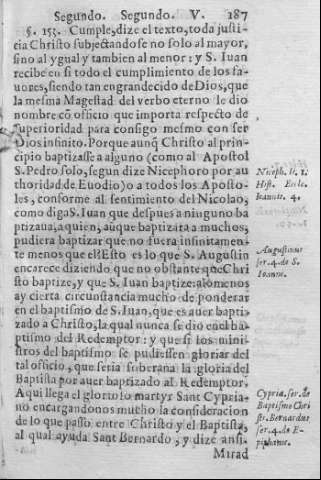 Segundo. Segundo. V. 187
§. 153. Cumple, dize el texto, toda justi-
cia Christo subjectandose no solo al mayor,
sino al ygual y tambien al menor: y S. Iuan
recibe en si todo el cumplimiento de los fa-
uores, siendo tan engrandecido de Dios, que
la mesma Magestad del verbo eterno le dio
nombre cõ officio que importa respecto de
superioridad para consigo mesmo con ser
Dios infinito. Porque aunq̃ Christo al prin-
cipio baptizasse a alguno (como al Apostol
S. Pedro solo, segun dize Nicephoro por au
thoridad de Euodio) o a todos los Aposto-
les, conforme al sentimiento del Nicolao,
como diga S. Iuan que despues a ninguno ba
ptizaua, a quien, aũque baptizara a muchos,
pudiera baptizar que no fuera infinitamen-
te menos que el? Esto es lo que S. Augustin
encarece diziendo que no obstante que Chri
sto baptize, y que S. Iuan baptize: alomenos
ay cierta circunstancia mucho de ponderar
en el baptismo de S. Iuan, que es auer bapti-
zado a Christo, la qual nunca se dio en el ba-
ptismo del Redemptor: y que si los mini-
stros del baptismo se pudiessen gloriar del
tal officio, que seria soberana la gloria del
Baptista por auer baptizado al Redemptor.
Aqui llega el glorioso martyr Sant Cypria-
no encargandonos mucho la consideracion
de lo que passo entre Christo y el Baptista,
al qual ayuda Sant Bernardo, y dize ansi.
Mirad
Niceph. li. 1.
Hist. Eccle.
Ioannis. 4.
Augustinus
ser. 4. de S.
Ioanne.
Cypria. ser. de
Baptismo Chri
sti. Bernardus
ser. 4. de E-
piphania.